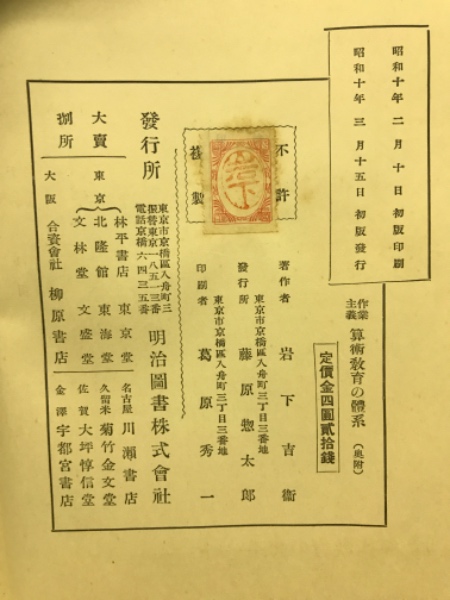 昭和十年二月十日初版印刷
昭和十年三月十五日初版發行
作業主義 算術敎育の體系（奥附）
定價金四圓貳拾錢
著作者 岩下吉衞
東京市京橋區入舟町三丁目三番地
發行所 藤原惣太郎
東京市京橋區入舟町三丁目三番地
印刷者 葛原秀一
不許複製
岩下
發行所
東京市京橋區入舟町三
振替東京一八五一三番
電話京橋六四三五番
明治圖書株式會社
大賣捌所
東京
林平書店 東京堂
北隆館 東海堂
文林堂 文盛堂
大阪 合資會社 柳原書店
名古屋 川瀬書店
久留米 菊竹金文堂
佐賀 大坪惇信堂
金澤 宇都宮書店